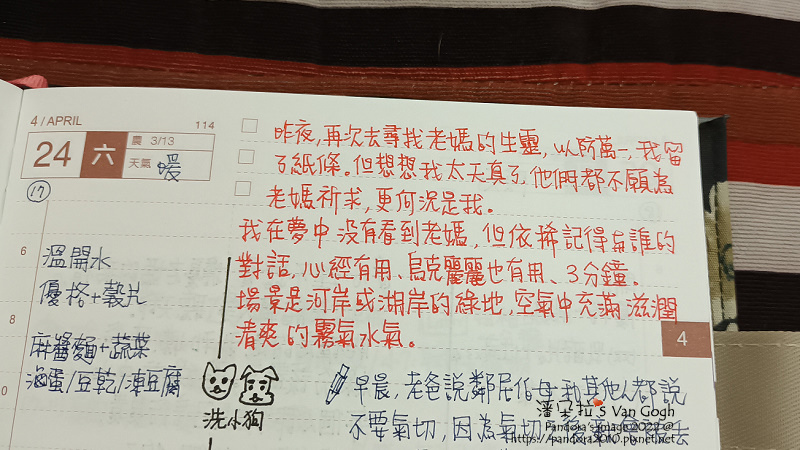 4 / APRIL
114
24 六
農 3/13
天氣 暖
17
昨夜,再次去尋找老媽的生靈,以防萬一,我留
了紙條。但想想我太天真了,他們都不願為
老媽祈求,更何況是我。
我在夢中沒有看到老媽,但依稀記得有誰的
對話,心經有用、烏克麗麗也有用、3分鐘。
場景是河岸或湖岸的綠地,空氣中充滿滋潤
清爽的霧氣水氣。
6
溫開水
優格+穀片
8
麻醬麵+蔬菜
滷蛋/豆乾/凍豆腐
0
洗小狗
4
早晨,老爸說鄰居伯母和其他人都說
不要氣切,因為氣切
去
潘朵拉's Van Gogh
Pandora's image 2022 @
https://pandora2010.pixnet.net